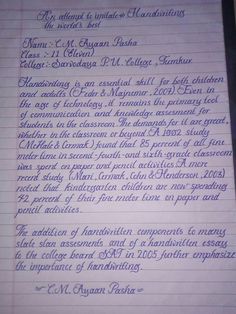 An attempt to imitate Handwriting
the world's best
Name :- C.M. Ayaan Pasha
Class :- 11 (Eleven)
College :- Sarvodaya P.U. College, Tumkur
Handwriting is an essential skill for both children
and adults (Feder & Majnemer, 2007) Even in
the age of technology, it remains the primary tool
of communication and knowledge assesment for
students in the classroom. The demands for it are great,
whether in the classroom or beyond. A 1992 study
(McHale & Cermak) found that 85 percent of all fine
motor time in second-fourth-and sixth-grade classrooms
was spent on paper and pencil activities. A more
recent study (Marr, Cermak, Cohn & Henderson, 2003)
noted that kindergarten children are now spending
42 percent of their fine motor time on paper and
pencil activities.
The addition of handwritten components to many
state assesments and of a handwritten essay
to the college board SAT in 2005 further emphasize
the importance of handwriting.
C.M. Ayaan Pasha